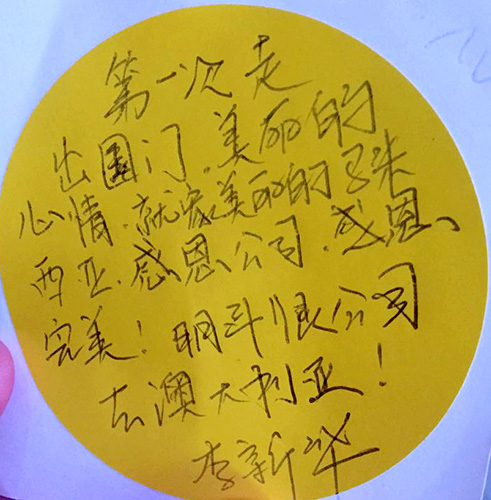 第一次走
出国门.美丽的
心情.就象美丽的马来
西亚.感恩公司.感恩
完美！明年跟公司
去澳大利亚！
李新华